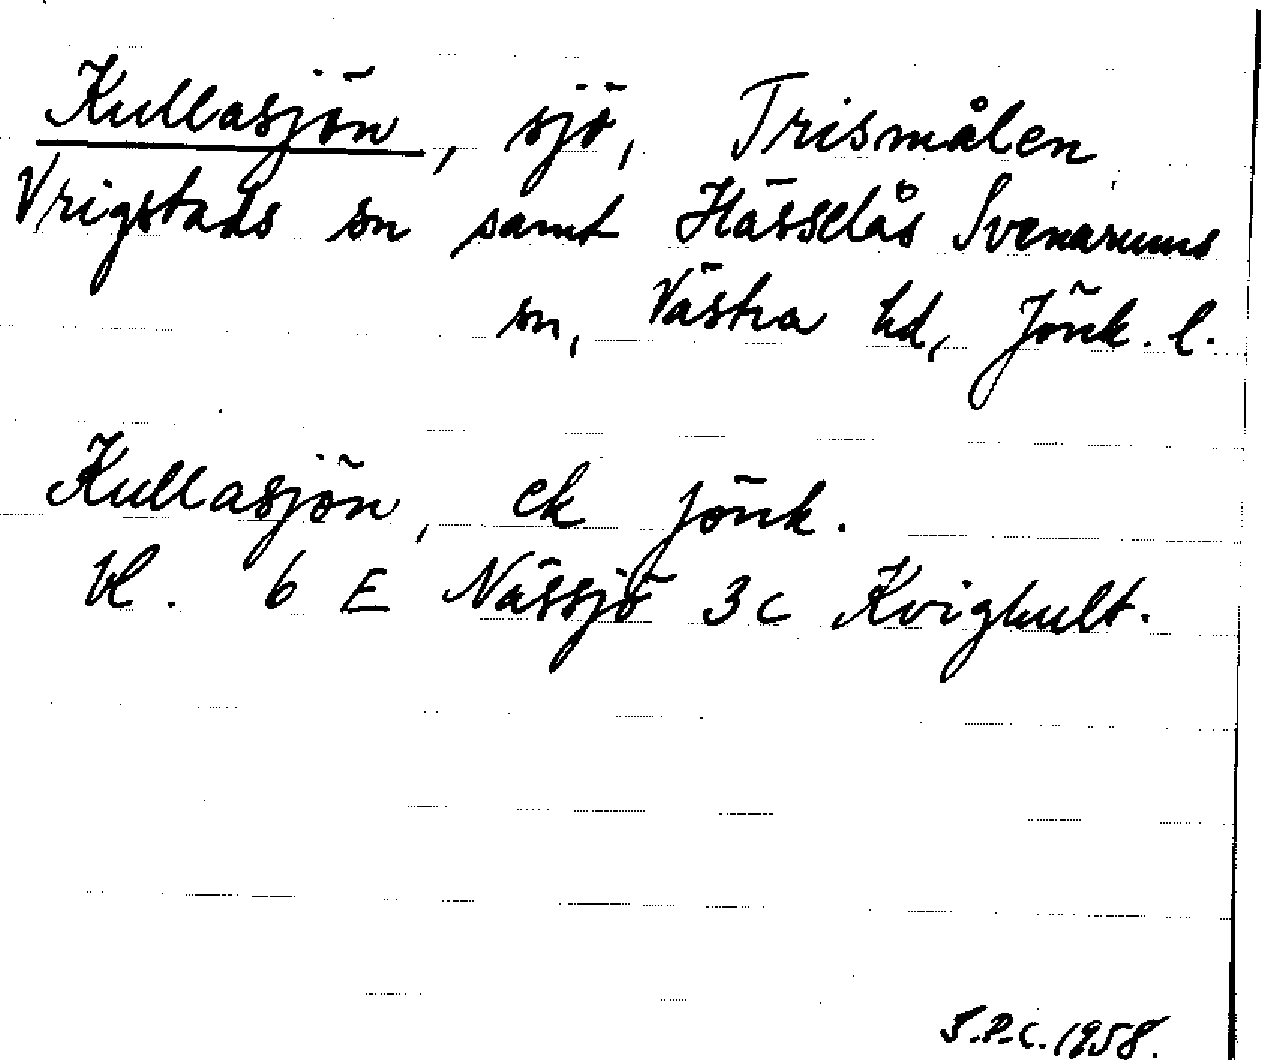 Kullasjön, sjö, Trismålen
Vrigstads sn samt Hässelås Svenarums
sn, Västra hd, Jönk. l.
Kullasjön, ek Jönk.
bl. 6 E Nässjö 3c Kvighult.
S.P.C. 1958.